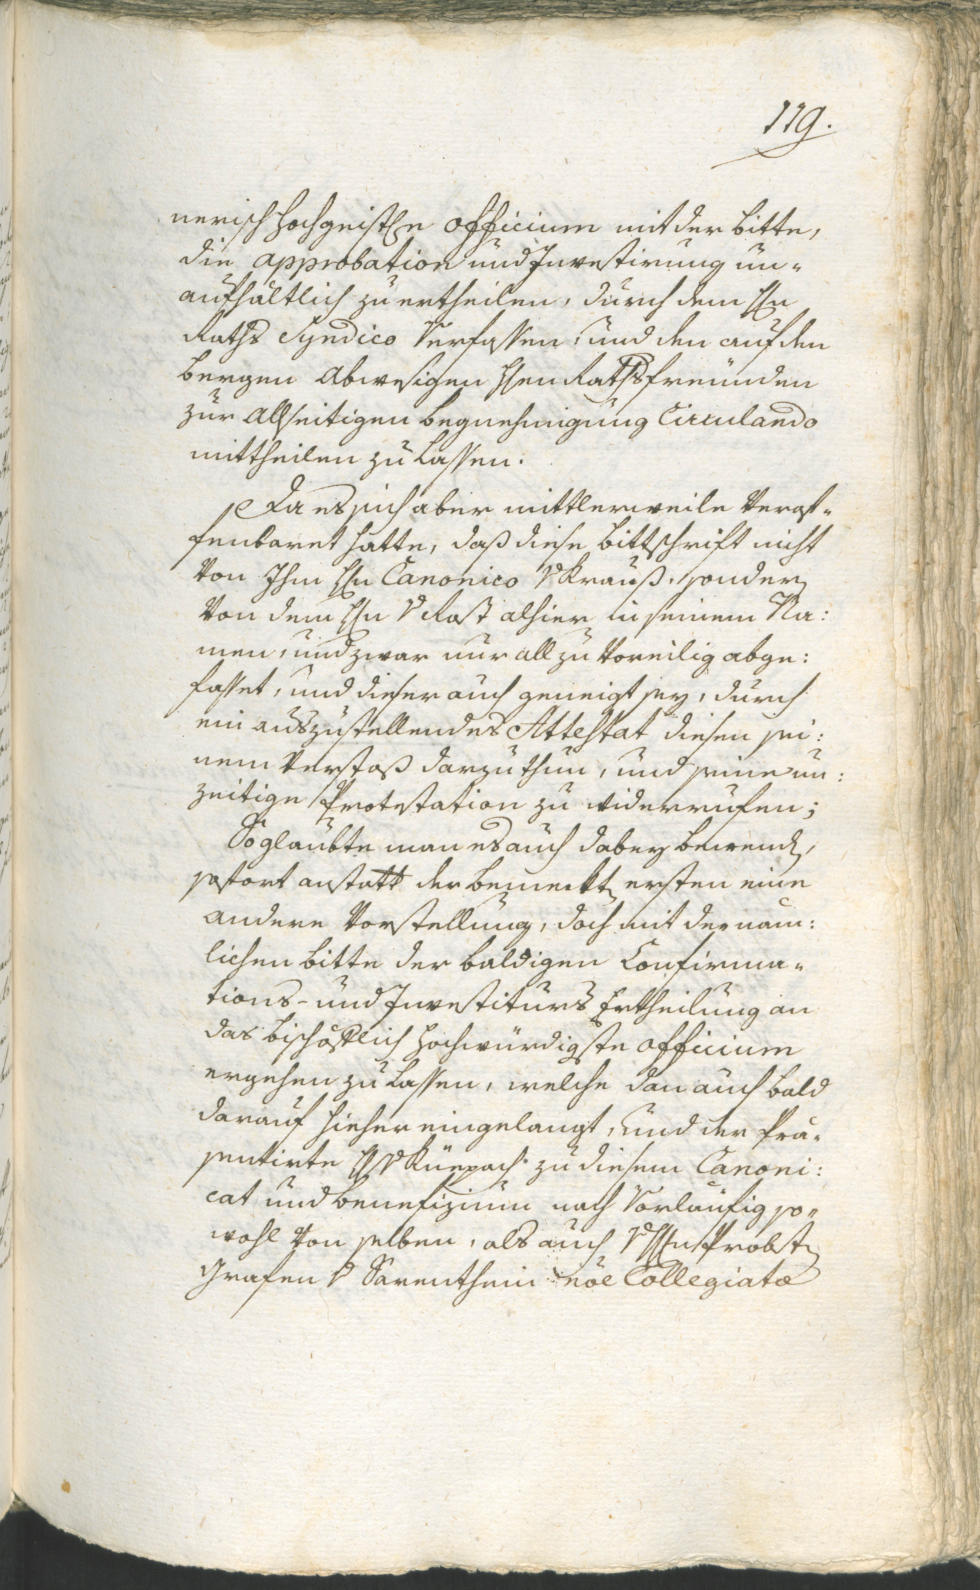 119.
nerisch hochgeistl. officium mit der bitte,
die approbation und Investirung un-
aufhältlich zu ertheilen, durch dem Hn
Raths Syndico Verfassen, und den auf den
bergen abwesigen Hhen Rathsfreünden
zur allseitigen begnehmigung Circulando
mittheilen zu lassen.
Da es sich aber mittlerweile Verof-
fenbaret hatte, daß diese bittschrift nicht
Von Ihm Hn Canonico V Krauß, sondern
Von dem Hn V Rost alhier in seinem Na:
men, und zwar nur all zu Voreilig abge:
fasset, und dieser auch geneigt sey, durch
ein auszustellendes Attestat diesen sei:
nem Verstoß darzuthun, und seine un:
zeitige Protestation zu widerrufen;
So glaubte man es auch dabey bewenden,
sofort anstatt der bemerkten ersten eine
andere Vorstellung, doch mit der näm:
lichen bitte der baldigen Confirma-
tions- und Investiturs Ertheilung an
das bischöflich hochwürdigste officium
ergehen zu lassen, welche dan auch bald
darauf hieher eingelangt, und der Prä-
sentirte H V Küepach zu diesem Canoni:
cat und benefizium nach Vorläufig so-
wohl Von selben, als auch V Hhn Probsten
Grafen V Sarenthein nõe Collegiatæ